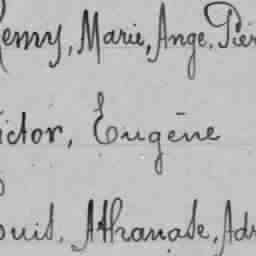 Remy, Marie, Ange, Pier
ictor, Eugène
ouis, Athanase, Adr